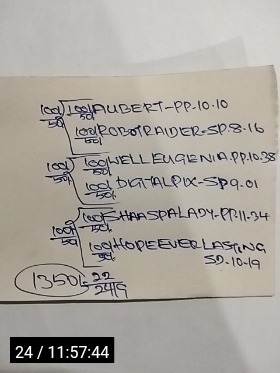 100/50 100/50 AUBERT-PP.10.10
100/50 ROBOTRAIDER-SP.8.16
100/50 100/50 WELL EUGENIA.PP.10.38
100/50 DIGITALPIX-SP9.01
100/50 100/50 KHAASPALADY-PP.11.34
100/50 HOPEEVERLASTING
SP.10-19
1350/- 22/24/9
24 / 11:57:44